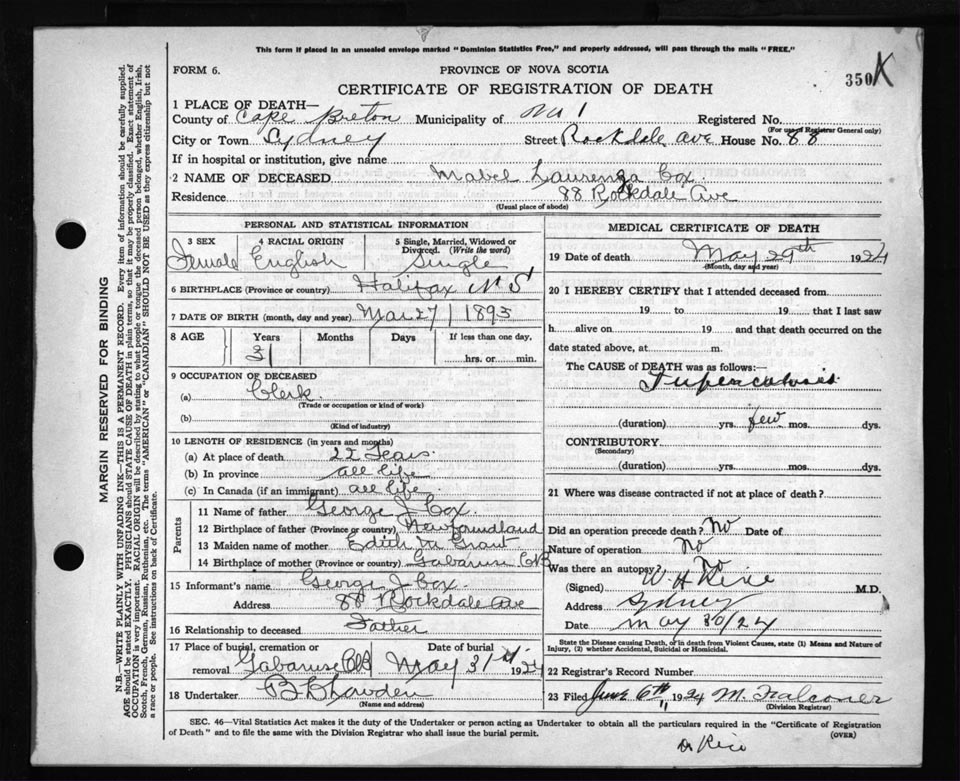 This form if placed in an unsealed envelope marked "Dominion Statistics Free," and properly addressed, will pass through the mails "FREE."
FORM 6. PROVINCE OF NOVA SCOTIA 350 K
CERTIFICATE OF REGISTRATION OF DEATH
1 PLACE OF DEATH—
County of Cape Breton Municipality of No 1 Registered No.
(For use of Registrar General only)
City or Town Sydney Street Rockdale Ave House No. 88
If in hospital or institution, give name
2 NAME OF DECEASED Mabel Laurenza Cox.
Residence 88 Rockdale Ave
(Usual place of abode)
PERSONAL AND STATISTICAL INFORMATION
3 SEX 4 RACIAL ORIGIN 5 Single, Married, Widowed or Divorced. (Write the word)
Female English Single
6 BIRTHPLACE (Province or country) Halifax N S
7 DATE OF BIRTH (month, day and year) Mar 27 1893
8 AGE Years Months Days If less than one day,
31 hrs. or min.
9 OCCUPATION OF DECEASED
(a) Clerk.
(Trade or occupation or kind of work)
(b)
(Kind of industry)
10 LENGTH OF RESIDENCE (in years and months)
(a) At place of death 22 Years.
(b) In province all life
(c) In Canada (if an immigrant) all life
Parents
11 Name of father George J Cox
12 Birthplace of father (Province or country) Newfoundland
13 Maiden name of mother Edith M Grant
14 Birthplace of mother (Province or country) Gabarus CB
15 Informant's name George J Cox.
Address 88 Rockdale Ave
16 Relationship to deceased Father
17 Place of burial, cremation or removal Date of burial
Gabarus CB May 31st 1924
18 Undertaker
(Name and address)
MEDICAL CERTIFICATE OF DEATH
19 Date of death May 29th 1924
(Month, day and year)
20 I HEREBY CERTIFY that I attended deceased from
19 to 19 that I last saw
h alive on 19 and that death occurred on
date stated above, at m.
The CAUSE of DEATH was as follows:—
Tuberculosis
(duration) yrs. few mos. dys.
CONTRIBUTORY
(Secondary)
(duration) yrs. mos. dys.
21 Where was disease contracted if not at place of death?
Did an operation precede death? No Date of
Nature of operation No
Was there an autopsy? No
(Signed) W H Rice M.D.
Address Sydney
Date May 30/24
State the Disease causing Death, or in death from Violent Causes, state (1) Means and Nature of Injury, (2) whether Accidental, Suicidal or Homicidal.
22 Registrar's Record Number
23 Filed June 6th 1924 M. Falconer
(Division Registrar)
SEC. 46—Vital Statistics Act makes it the duty of the Undertaker or person acting as Undertaker to obtain all the particulars required in the "Certificate of Registration
of Death" and to file the same with the Division Registrar who shall issue the burial permit. (OVER)
Dr Rice
MARGIN RESERVED FOR BINDING
N.B.—WRITE PLAINLY WITH UNFADING INK—THIS IS A PERMANENT RECORD. Every item of information should be carefully supplied.
AGE should be stated EXACTLY. PHYSICIANS should STATE CAUSE OF DEATH in plain terms, so that it may be properly classified. Exact statement of
OCCUPATION is very important. RACIAL ORIGIN will be described by stating to what people or tongue the deceased person belonged, whether English, Irish,
Scotch, French, German, Russian, Ruthenian, etc. The terms "AMERICAN" or "CANADIAN" SHOULD NOT BE USED as they express citizenship but not
a race or people. See instructions on back of Certificate.